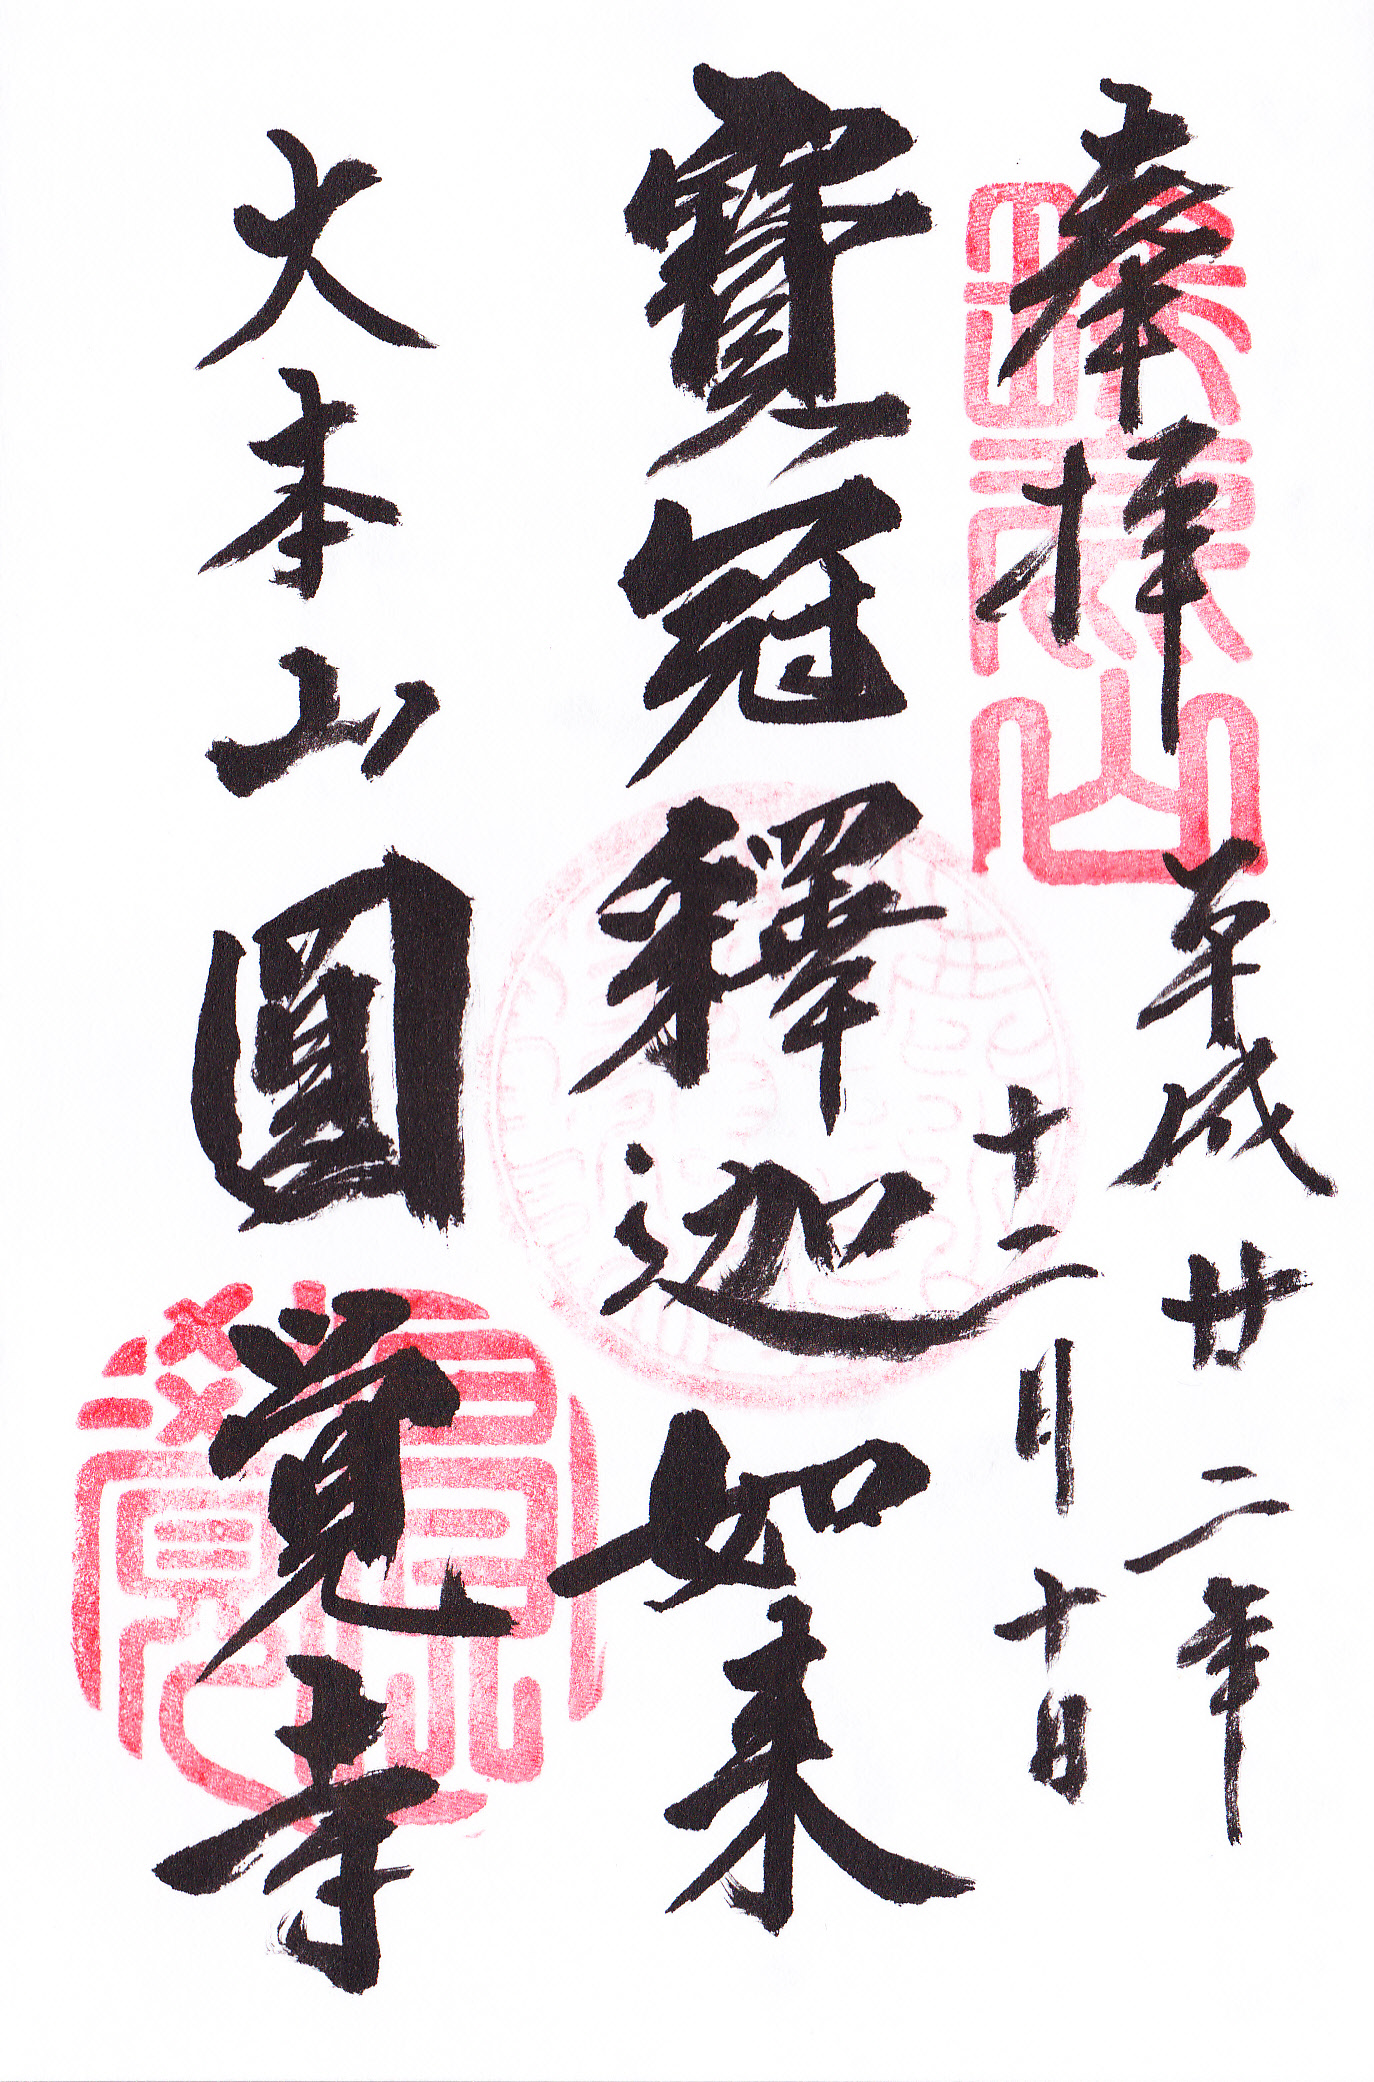 奉拝
平成廿二年
十二月十日
寶冠釋迦如来
大本山圓覚寺
瑞鹿山